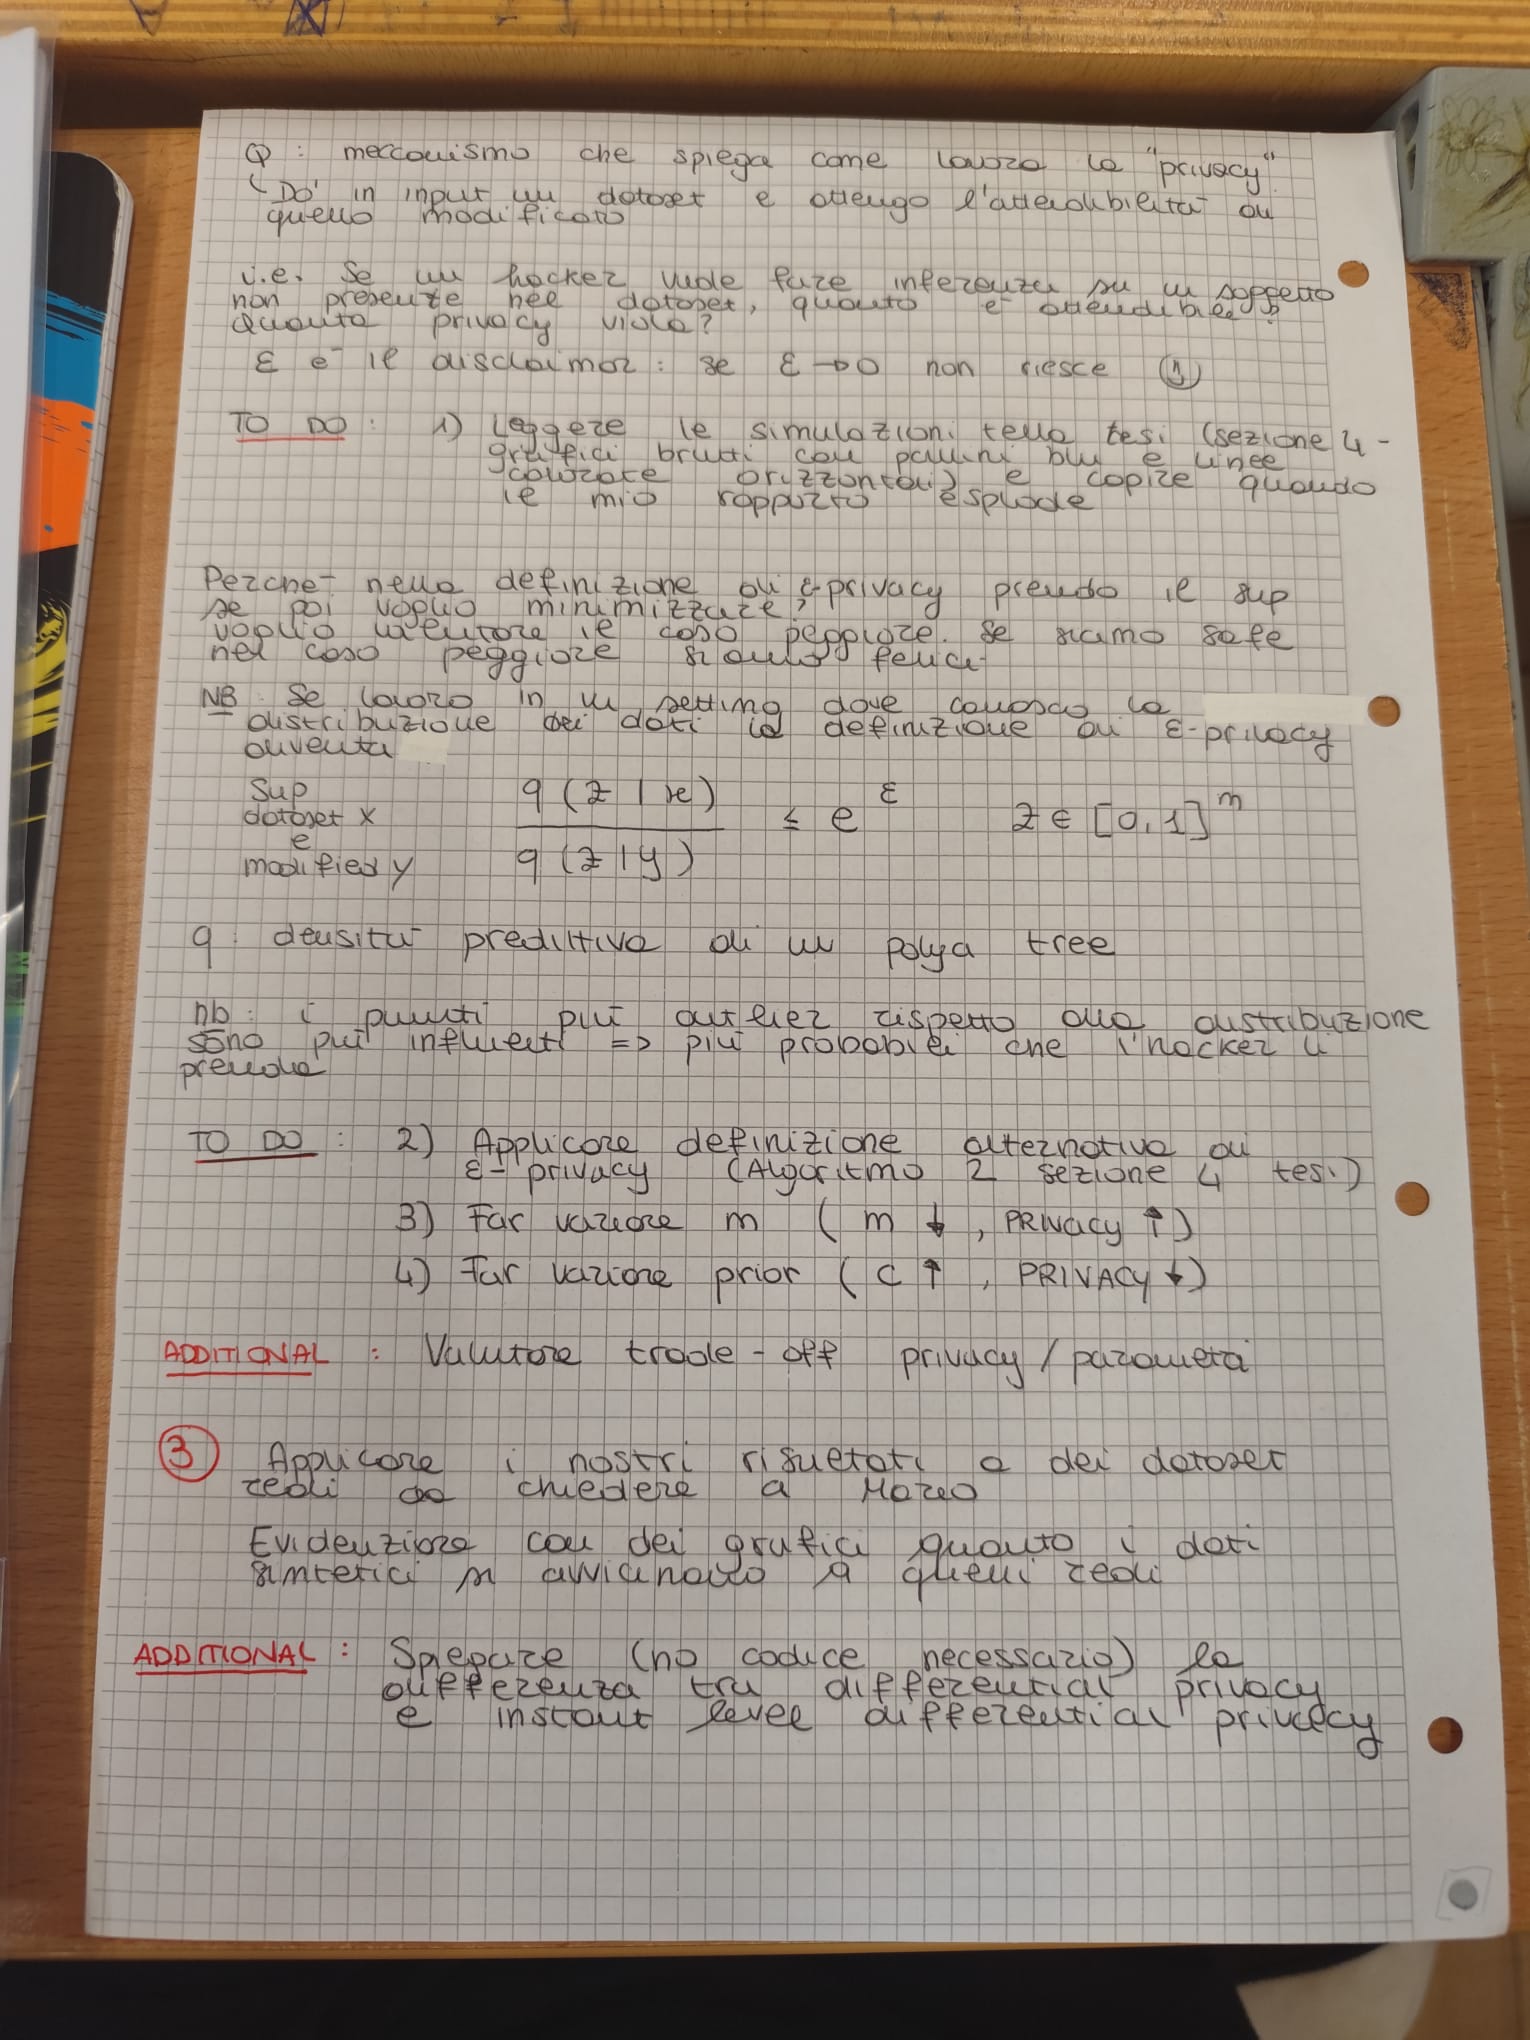 Q : meccanismo che spiega come lavora la "privacy"
Do' in input un dataset e ottengo l'attendibilità di
quello modificato
i.e. Se un hacker vuole fare inferenza su un soggetto
non presente nel dataset, quanto è attendibile?
Quanta privacy viola?
ε è il disclaimor : se ε → 0 non riesce :)
TO DO : 1) Leggere le simulazioni della tesi (sezione 4 -
grafici brutti con pallini blu e linee
colorate orizzontali) e capire quando
il mio rapporto esplode
Perché nella definizione di ε-privacy prendo il sup
se poi voglio minimizzare?
voglio valutare il caso peggiore. Se siamo safe
nel caso peggiore siamo felici
NB : Se lavoro in un setting dove conosco la
distribuzione dei dati la definizione di ε-privacy
diventa
Sup
dataset x
e
modified y
q (z | x)
q (z | y)
≤ e^ε z ∈ [0,1]^m
q : densità predittiva di un polya tree
nb : i punti più outlier rispetto alla distribuzione
sono più influenti => più probabile che l'hacker li
prenda
TO DO : 2) Applicare definizione alternativa di
ε - privacy (Algoritmo 2 sezione 4 tesi)
3) Far variare m ( m ↓ , PRIVACY ↑ )
4) Far variare prior ( C ↑ , PRIVACY ↓ )
ADDITIONAL : Valutare trade - off privacy / parametri
3 Applicare i nostri risultati a dei dataset
reali da chiedere a Mario
Evidenziare con dei grafici quanto i dati
sintetici si avvicinano a quelli reali
ADDITIONAL : Spiegare (no codice necessario) la
differenza tra differential privacy
e instant level differential privacy